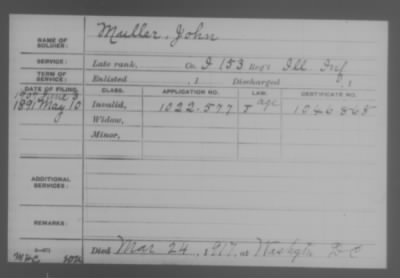 NAME OF SOLDIER: Muller, John
SERVICE: Late rank, Co. I 153 Reg't Ill Inf
TERM OF SERVICE: Enlisted , 1 Discharged , 1
DATE OF FILING. CLASS. APPLICATION NO. LAW. CERTIFICATE NO.
1891 May 10 Invalid, 1022.577 age
Widow,
Minor,
ADDITIONAL SERVICES:
REMARKS:
Died Mar 24, 1917, at Washgtn D C